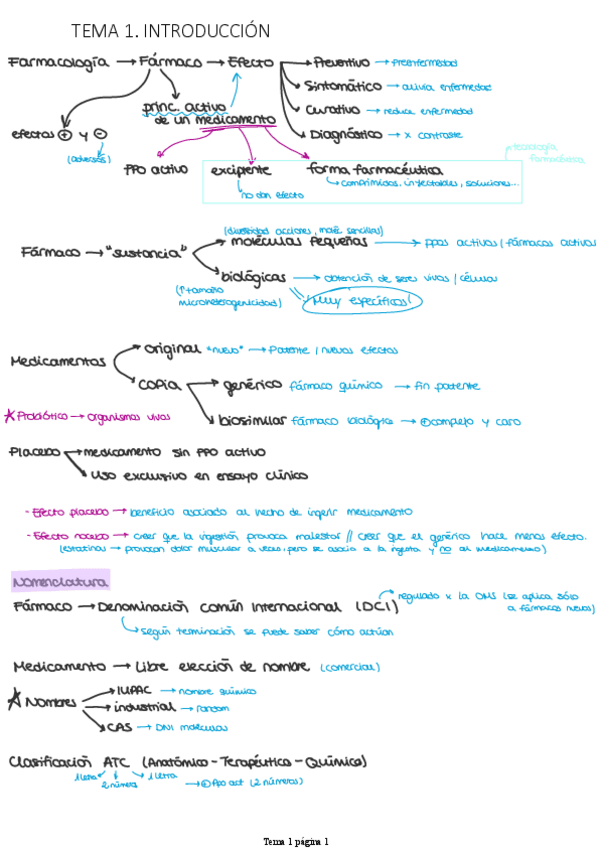 TEMA 1. INTRODUCCIÓN
Farmacología → Fármaco → Efecto → Preventivo → preenfermedad
Sintomático → alivia enfermedad
princ. activo
de un medicamento
Curativo → reduce enfermedad
efectos ⊕ y ⊖
Diagnóstico → x contraste
(adversos)
tecnología
farmacéutica
PPO activo excipiente forma farmacéutica
no dan efecto
comprimidos, inyectables, soluciones...
(diversidad acciones, moléc sencillas)
Fármaco → "sustancia" moléculas pequeñas → ppos activos / fármacos activos
biológicas → obtención de seres vivos / células
(↑ tamaño
microheterogenicidad)
Muy específicos!
Medicamentos original "nuevo" → Patente / nuevos efectos
copia genérico fármaco químico → fin patente
* Probiótico → organismos vivos
biosimilar fármaco biológico → ⊕ complejo y caro
Placebo → medicamento sin PPO activo
uso exclusivo en ensayo clínico
- Efecto placebo → beneficio asociado al hecho de ingerir medicamento
- Efecto nocebo → creer que la ingestión provoca malestar // creer que el genérico hace menos efecto.
(estatinas → provocan dolor muscular a veces, pero se asocia a la ingesta y no al medicamento)
Nomenclatura
Fármaco → Denominación Común Internacional (DCI) regulado x la OMS (se aplica sólo
a fármacos nuevos)
según terminación se puede saber cómo actúan
Medicamento → Libre elección de nombre (comercial)
* Nombres IUPAC → nombre químico
industrial → random
CAS → DNI moléculas
Clasificación ATC (Anatómico - Terapéutica - Química)
1 letra 2 números 1 letra → ⊕ Ppo act (2 números)
Tema 1 página 1